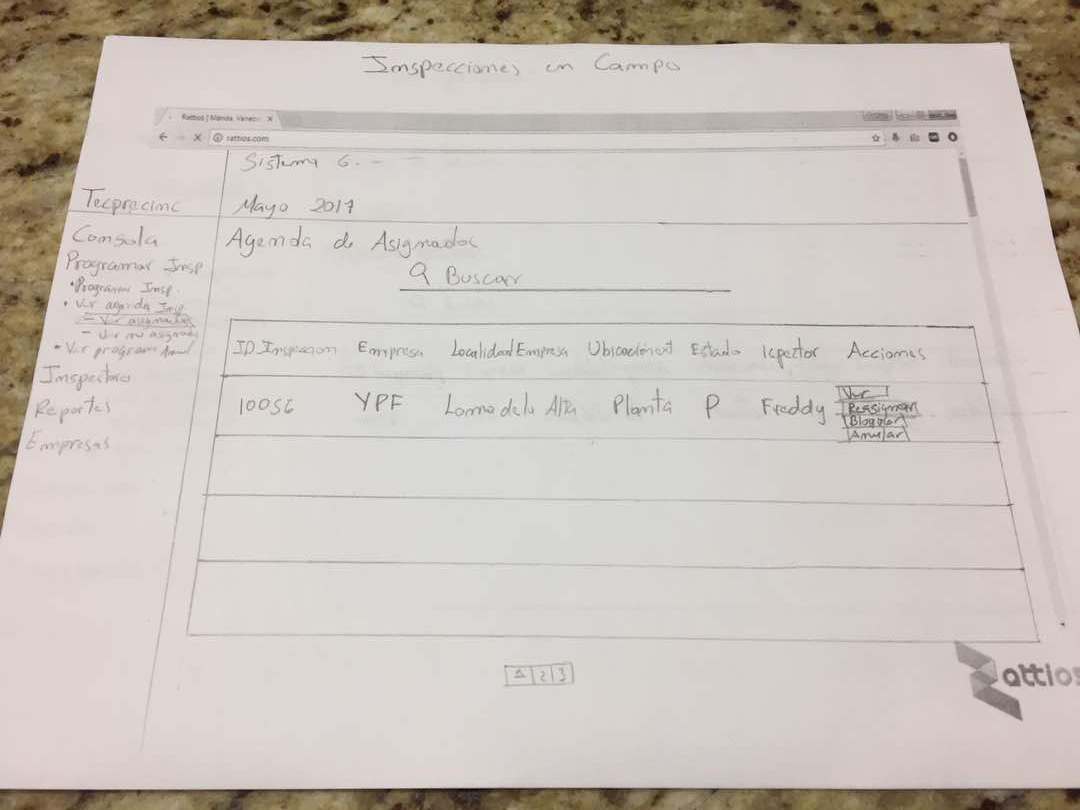 Inspecciones en Campo
Rattios | Mérida, Venezu X
rattios.com
Sistema G.-
Tecprecinc
Mayo 2017
Consola
Programar Insp
• Programar Insp.
• Ver agenda Insp.
- Ver asignados
- Ver no asignados
• Ver program Anual
Inspectores
Reportes
Empresas
Agenda de Asignados
Buscar
ID.Inspeccion Empresa Localidad Empresa Estado Acciones
10056 YPF Loma de la Alta Planta P Freddy
Ver
Reasignar
Bloquear
Anular
1 2 3
Rattios